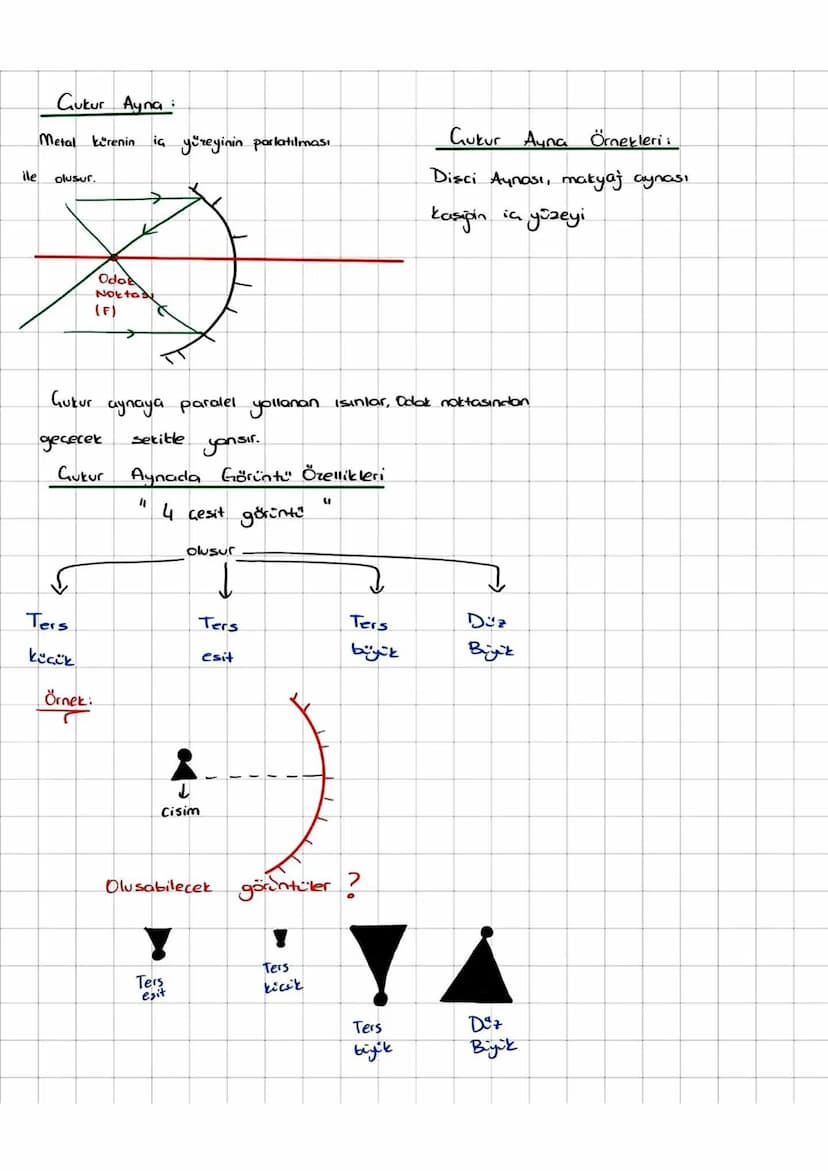 Çukur Ayna:
Metal kürenin iç yüzeyinin parlatılması
ile oluşur.
Odak
Noktası
(F)
Çukur Ayna Örnekleri:
Dişçi Aynası, makyaj aynası
kaşığın iç yüzeyi
Çukur aynaya paralel yollanan ışınlar, Odak noktasından
geçecek şekilde yansır.
Çukur Aynada Görüntü Özellikleri
" 4 çeşit görüntü "
oluşur
Ters
küçük
Ters
eşit
Ters
büyük
Düz
Büyük
Örnek:
cisim
Oluşabilecek görüntüler ?
Ters
eşit
Ters
küçük
Ters
büyük
Düz
Büyük